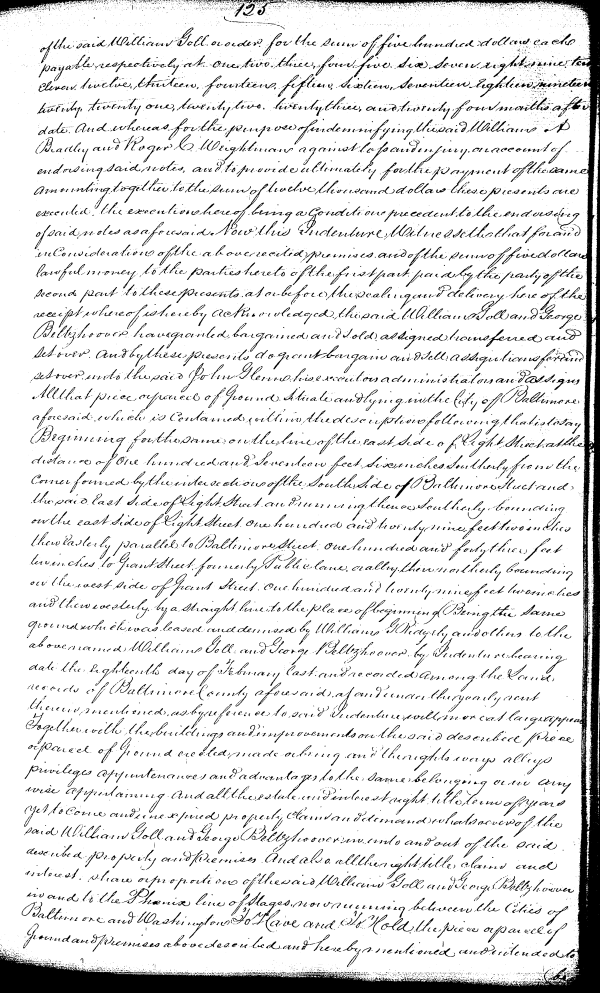 125
of the said William Goll or order for the sum of five hundred dollars each
payable respectively at one two, three, four five six seven eight nine ten
eleven twelve, thirteen, fourteen, fifteen, sixteen, seventeen Eighteen nineteen
twenty, twenty one, twenty two. twenty three, and twenty four months after
date. And whereas for the purpose of indemnifying the said William A
Bradley and Roger C Weightman against loss and injury on account of
endorsing said notes, and to provide ultimately for the payment of the same
amounting together to the sum of twelve thousand dollars these presents are
executed. the execution hereof being a Condition precedent to the endorsing
of said notes as aforesaid. Now this Indenture Witnesseth that for and
in Consideration of the above recited premises and of the sum of five dollars
lawful money to the parties hereto of the first part paid by the party of the
second part to these presents at or before the sealing and delivery hereof the
receipt whereof is hereby acknowledged the said William Goll and George
Beltzhoover have granted bargained and sold, assigned transferred and
set over. And by these presents do grant bargain and sell assign transfer and
set over unto the said John Glenn his executors administrators and assigns
All that piece or parcel of Ground situate and lying in the City of Baltimore
aforesaid which is Contained within the description following that is to say
Beginning for the same on the line of the east side of Light Street at the
distance of One hundred and Seventeen feet six inches Southerly from the
Corner formed by the intersection of the South side of Baltimore Street and
the said east side of Light Street and running thence Southerly bounding
on the east side of Light Street One hundred and twenty nine feet two inches
then Easterly parallel to Baltimore Street. one hundred and forty three feet
two inches to Grant Street, formerly Public lane, or alley, then northerly bounding
on the west side of Grant Street. One hundred and twenty nine feet two inches
and then westerly by a straight line to the place of beginning Being the same
ground which was leased and demised by William G Ridgely and others to the
above named William Goll and George Beltzhoover by Indenture bearing
date the Eighteenth day of February last and recorded among the Land
records of Baltimore County aforesaid, at and under the yearly rent
therein mentioned, as by reference to said Indenture will more at large appear
Together with the buildings and improvements on the said described piece
or parcel of Ground erected, made or being and the rights ways alleys
privileges appurtenances and advantages to the same belonging or in any
wise appertaining And all the estate and interest right title term of years
yet to come and unexpired property claim and demand whatsoever of the
said William Goll and George Beltzhoover in, unto and out of the said
described property and premises And also all the right title, claim and
interest. share or proportion of the said William Goll and George Beltzhoover
in and to the Phenix line of Stages, now running between the Cities of
Baltimore and Washington To Have and To Hold the piece or parcel of
Ground and premises above described and hereby mentioned and intended to